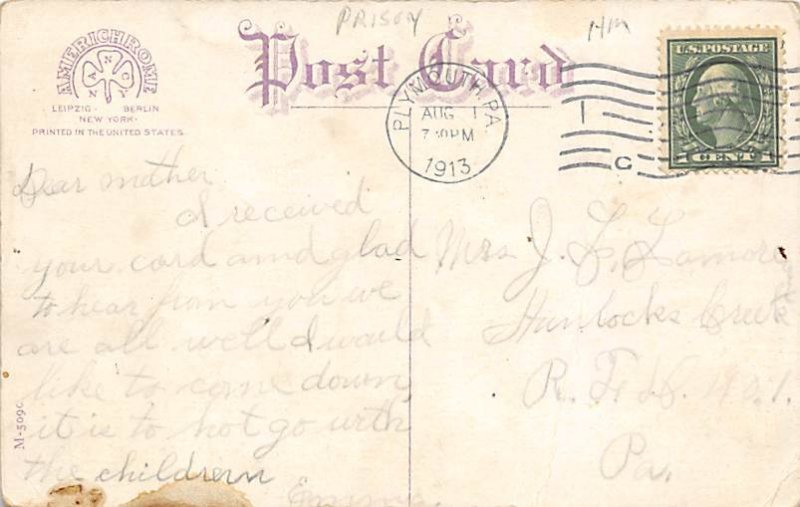 PRISON
Hm
AMERICHROME
ANCNY
LEIPZIG · BERLIN
NEW YORK·
PRINTED IN THE UNITED STATES.
Post Card
PLYMOUTH, PA.
AUG 1
7 30 PM
1913
1
C
U.S. POSTAGE
1 CENT 1
Dear mother
I received
your card amd glad
to hear from you we
are all well I would
like to come down
it is to hot go with
the childrern
Emma.
Mrs J. L. Lamore
Hunlocks Creek
R. F. D. No. 1.
Pa.
M-5090